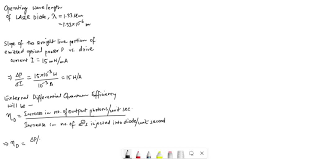 Operating wavelength
of LASER Diode, λ = 1.33 μm
= 1.33×10⁻⁶ m
Slope of the straight line portion of
emitted optical power P vs. drive
current I = 15 mW/mA
⇒ ΔP/ΔI = 15×10⁻³ W / 10⁻³ A = 15 W/A
External Differential Quantum Efficiency
will be -
η_D = Increase in no. of output photons/unit sec
Increase in no. of injected into diode/unit second
⇒ η_D = ΔP/